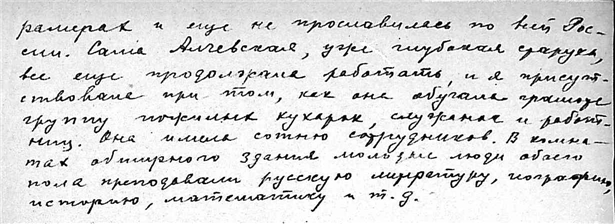 размерах и еще не прославилась по всей Рос-
сии. Сама Алчевская, уже глубокая старуха,
все еще продолжала работать, и я присут-
ствовала при том, как она обучала грамоте
группу пожилых кухарок, служанок и работ-
ниц. Она имела сотню сотрудников. В комна-
тах обширного здания молодые люди обоего
пола преподавали русскую литературу, географию,
историю, математику и т.д.